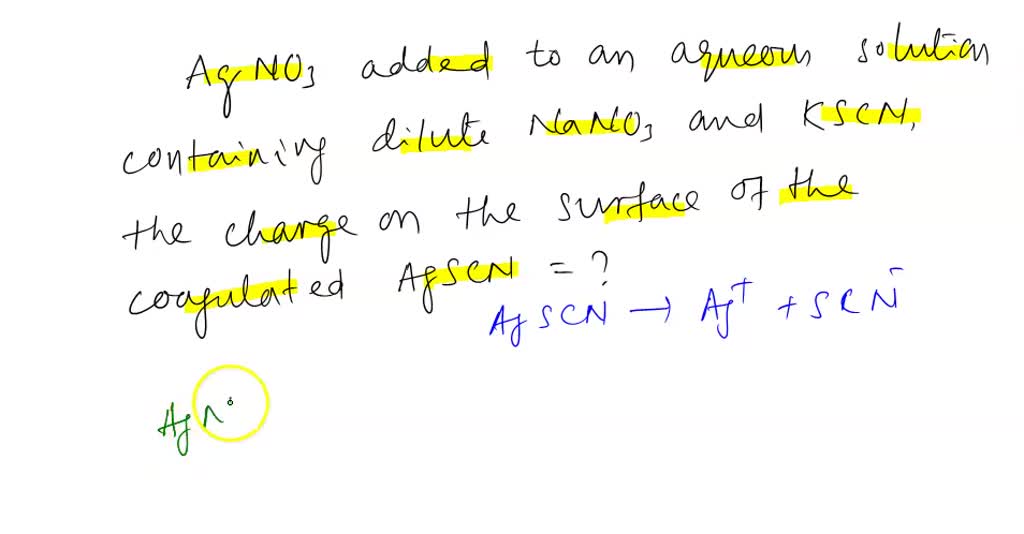 AgNO3 added to an aqueous solution
containing dilute NaNO3 and KSCN,
the charge on the surface of the
coagulated AgSCN = ?
AgSCN → Ag+ + SCN-
Ag